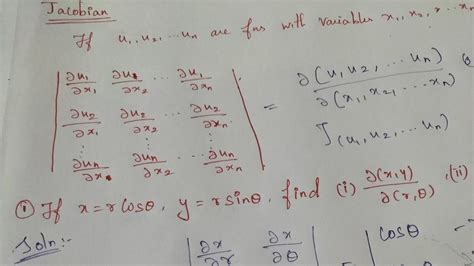 Jacobian
If u₁, u₂, ... uₙ are fns with variables x₁, x₂, x ... xₙ
| ∂u₁/∂x₁ ∂u₁/∂x₂ ... ∂u₁/∂xₙ |
| ∂u₂/∂x₁ ∂u₂/∂x₂ ... ∂u₂/∂xₙ | = ∂(u₁, u₂, ... uₙ)/∂(x₁, x₂, ... xₙ)
⋮ ⋮ ... ⋮
| ∂uₙ/∂x₁ ∂uₙ/∂x₂ ... ∂uₙ/∂xₙ | J(u₁, u₂, ... uₙ)
① If x = r cosθ, y = r sinθ, find (i) ∂(x,y)/∂(r,θ), (ii)
Soln:- | ∂x/∂r ∂x/∂θ | | cosθ -